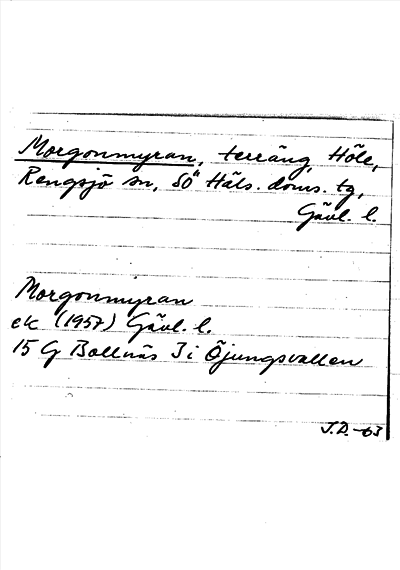 Morgonmyran, terräng, Höle,
Rengsjö sn, Sö Häls. doms. tg,
Gävl. l.
Morgonmyran
ek (1957) Gävl. l.
15 G Bollnäs 3 i Öjungsvallen
J.D.-63